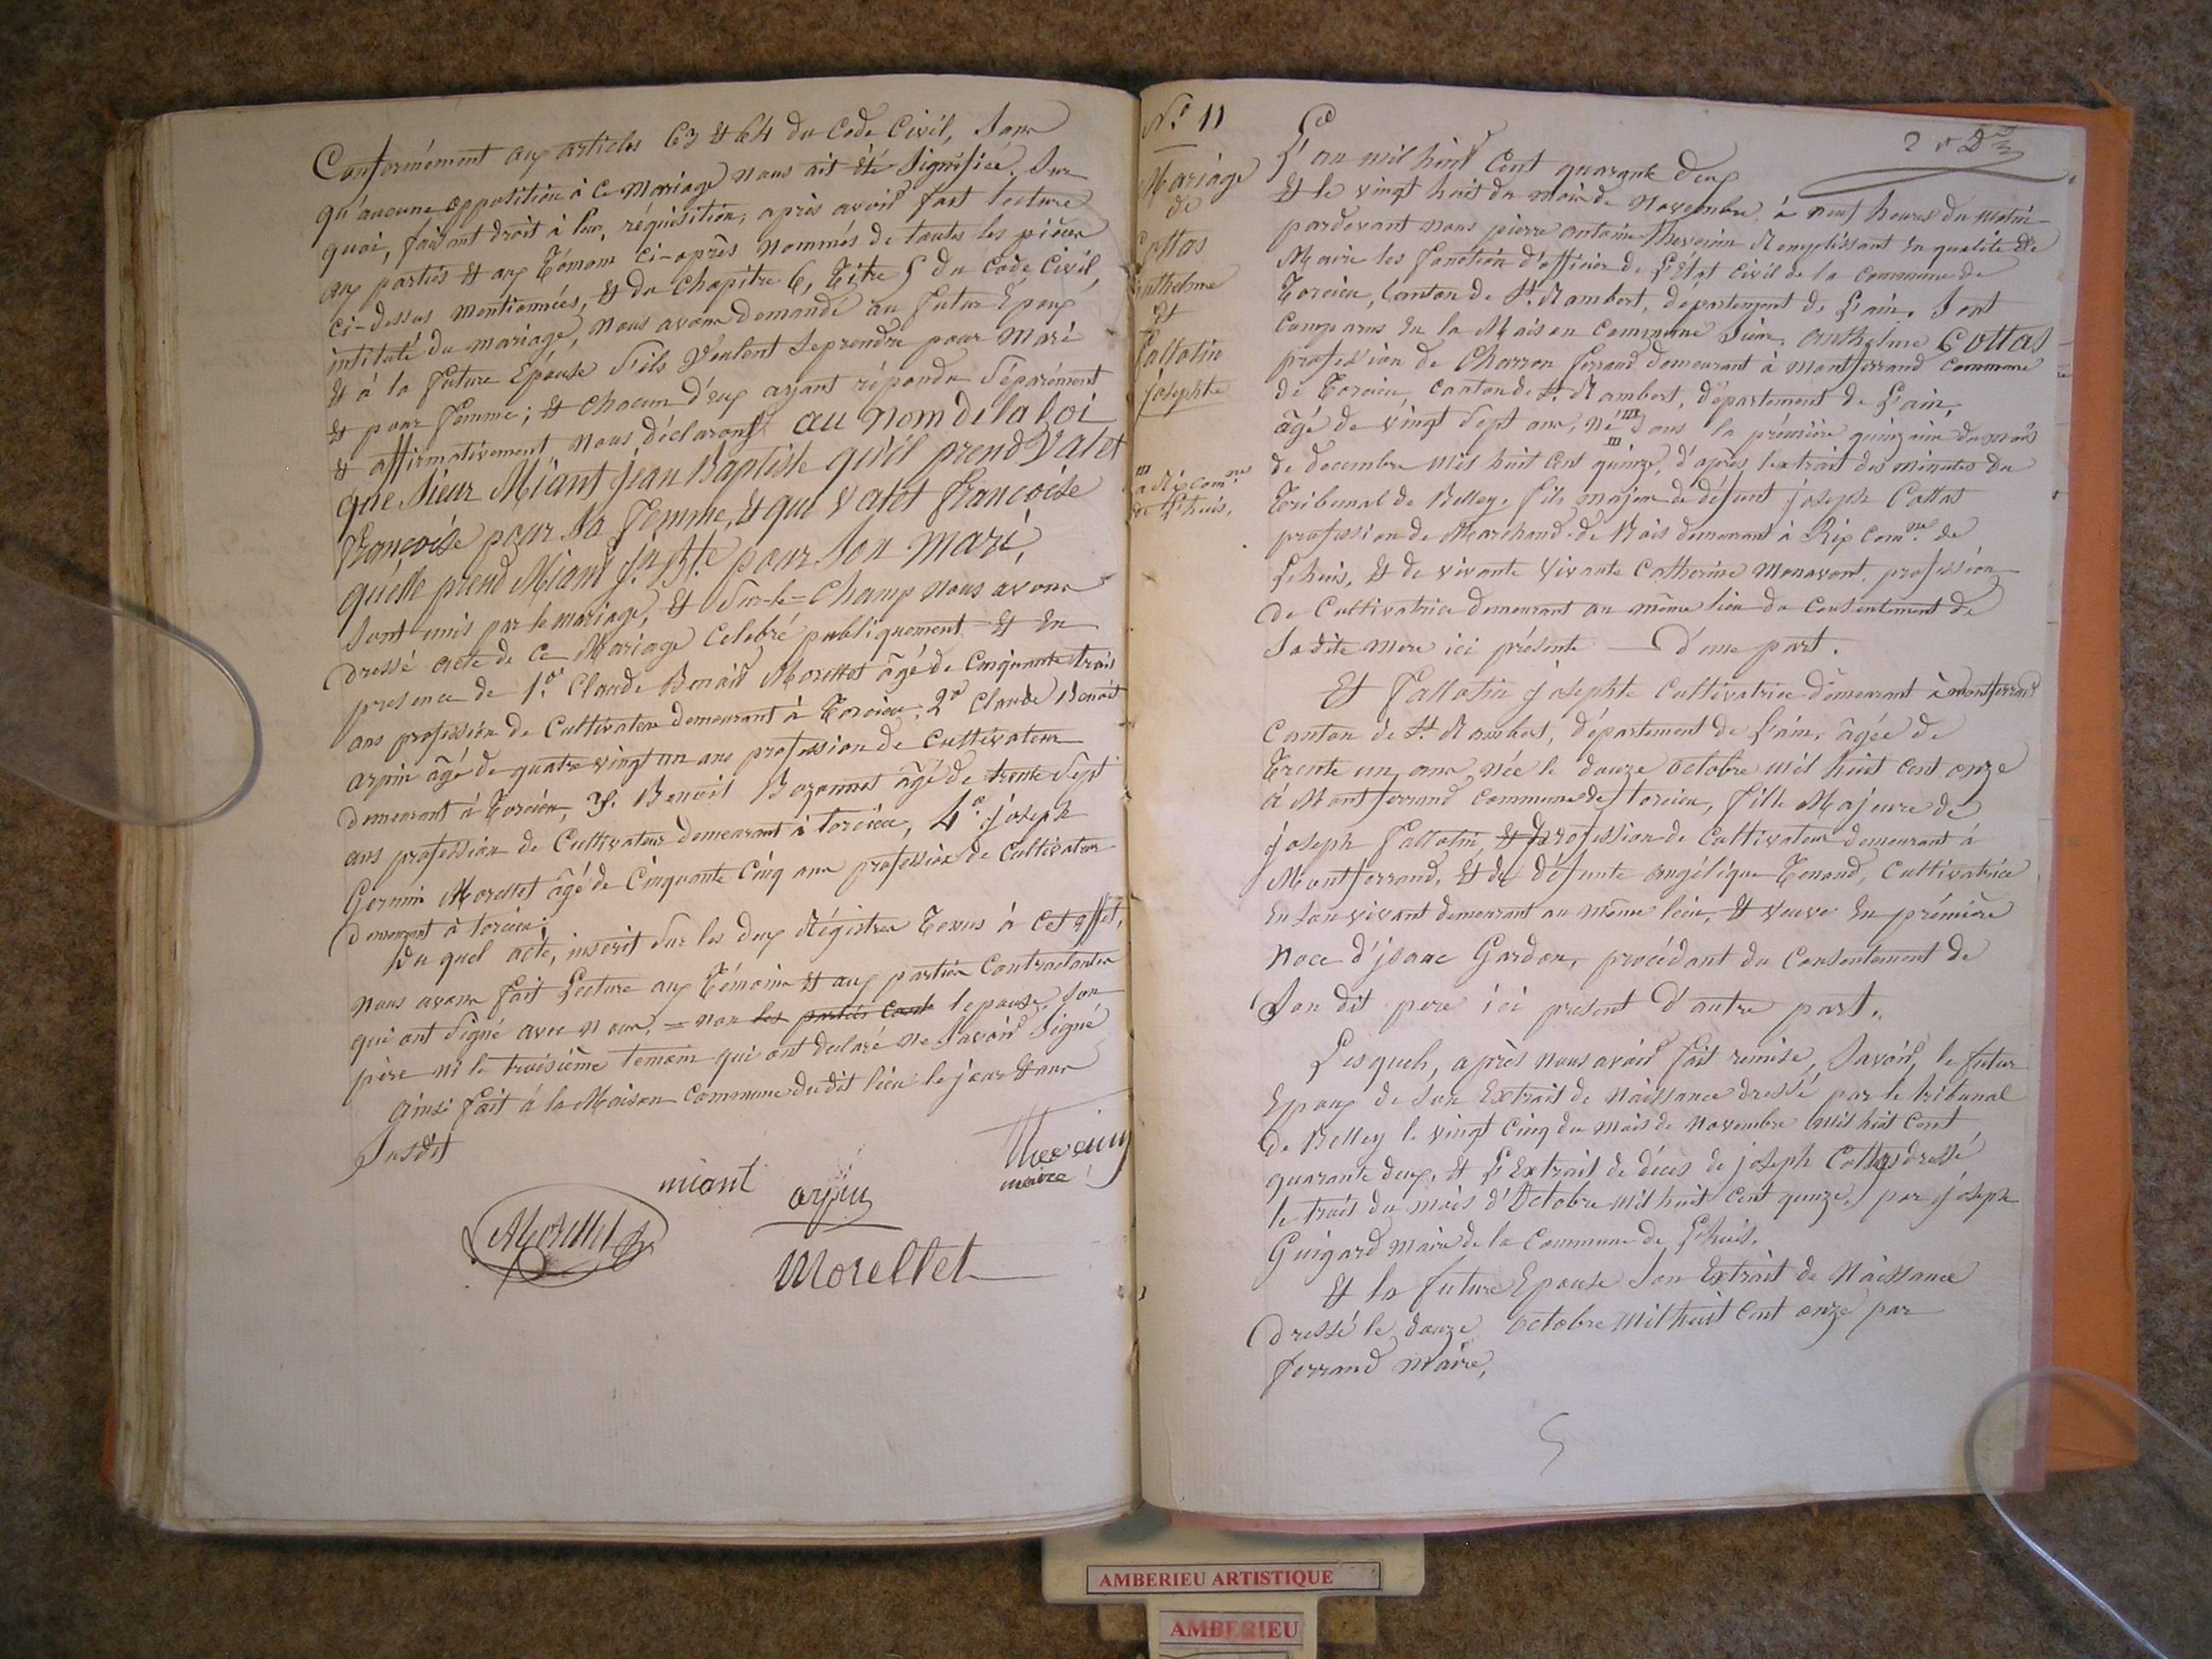 Conformément aux articles 63 et 64 du Code Civil, sans
qu'aucune oppotition à ce Mariage nous ait été Signifiée. Sur
quoi, faisant droit à leur réquisition, après avoir fait lecture
aux parties et aux Témoins ci-après nommés de toutes les pièces
ci-dessus mentionnées, et du Chapitre 6, Titre 5 du Code Civil,
intitulé du mariage, nous avons demandé au futur Epoux
et à la future Epouse s'ils veulent se prendre pour Mari
et pour femme; et chacun d'eux ayant répondu Séparément
et affirmativement, nous déclarons au nom de la loi
que Sieur Miant jean Baptiste qu'il prend Valet
françoise pour Sa femme, et que Valet françoise
quelle prend Miant Jn Bte pour Son mari,
Sont unis par le mariage, et Sur-le-Champ nous avons
dressé acte de ce Mariage Celebré publiquement et en
presence de 1.º Claude Benoit Morellet âgé de Cinquante trois
ans profession de Cultivateur demeurant à Torcieu, 2º Claude Benoit
arpin âgé de quatre vingt un ans profession de Cultivateur
demeurant à Torcieu, 3º. Benoit Bozonnet âgé de trente Sept
ans profession de Cultivateur demeurant à torcieu, 4º joseph
Germin Morellet âgé de Cinquante Cinq ans profession de Cultivateur
demeurant à torcieu;
Du quel acte, inscrit Sur les deux Régistres Tenus à cet effet,
nous avons fait Lecture aux Témoins et aux parties Contractantes
qui ont signé avec nous, = non les parties Cont lepouse, Son
père ni le troisième temoin qui ont declaré ne Savoir Signé
ainsi fait à la Maison Commune dudit lieu le jour et an
Susdit
Thevenin
maire
miant
arpin
Morellet
Morellet
Nº 11
Mariage
de
Cottas
anthelme
et
fallatin
josephte
à Rix Comne
de Lhuis.
L'an mil huit Cent quarante deux
et le vingt huit du mois de Novembre à neuf heures du matin
pardevant nous pierre antoine thevenin Remplissant en qualité de
Maire les fonction d'officier de L'état Civil de la Commune de
Torcieu, Canton de St Rambert, département de L'ain, Sont
Comparus en la Maison Commune Sieur anthelme Cottas
profession de Charron ferrand demeurant à Montferrand Commune
de Torcieu, Canton de St Rambert, département de L'ain,
âgé de vingt Sept ans, né dans la prémière quinzaine du mois
de decembre mil huit Cent quinze, d'après l'extrait des minutes du
Tribunal de Belley, fils majeur de défunt joseph Cottas
profession de Marchand de Bois demeurant à Rix Comne de
Lhuis, et de vivante vivante Catherine Monavont profession
de Cultivatrice demeurant au même lieu du Consentement de
Sadite mere ici présente — D'une part.
Et Fallatin josephte Cultivatrice demeurant à montferrand
Canton de St Rambert, département de L'ain, âgée de
Trente un ans, née le douze octobre mil huit Cent onze
à Montferrand Commune de Torcieu, fille Majeure de
joseph fallatin, et de profession de Cultivateur demeurant à
Montferrand, et de défunte angélique Tenand, Cultivatrice
en Son vivant demeurant au même lieu, et veuve en prémière
noce d'jsaac Gardon, procédant du Consentement de
Son dit pere ici present d'autre part.
Lesquels, après nous avoir fait remise, Savoir, le futur
Epoux de Son Extrait de Naissance dressé par le tribunal
de Belley le vingt Cinq du mois de Novembre mil huit Cent
quarante deux, et L'Extrait de décès de joseph Cottas dressé
le trois du mois d'Octobre mil huit Cent quinze, par joseph
Guigard maire de la Commune de Lhuis.
Et la future Epouse Son Extrait de Naissance
dressé le douze octobre mil huit Cent onze par
ferrand maire,
AMBERIEU ARTISTIQUE
AMBERIEU